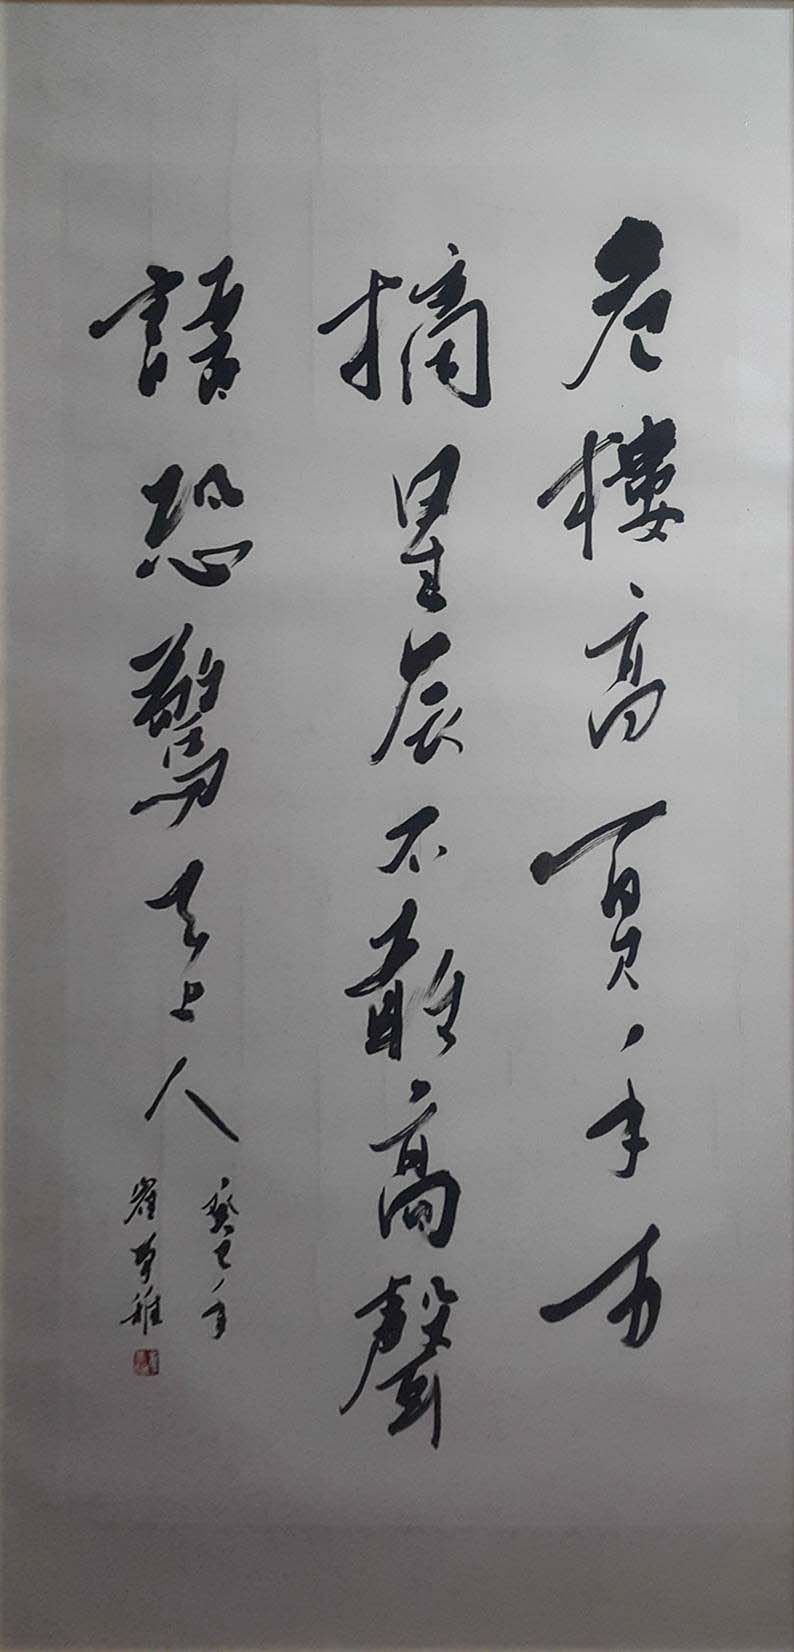 危樓高百尺手可
摘星辰不敢高聲
語恐驚天上人
癸巳年
崔